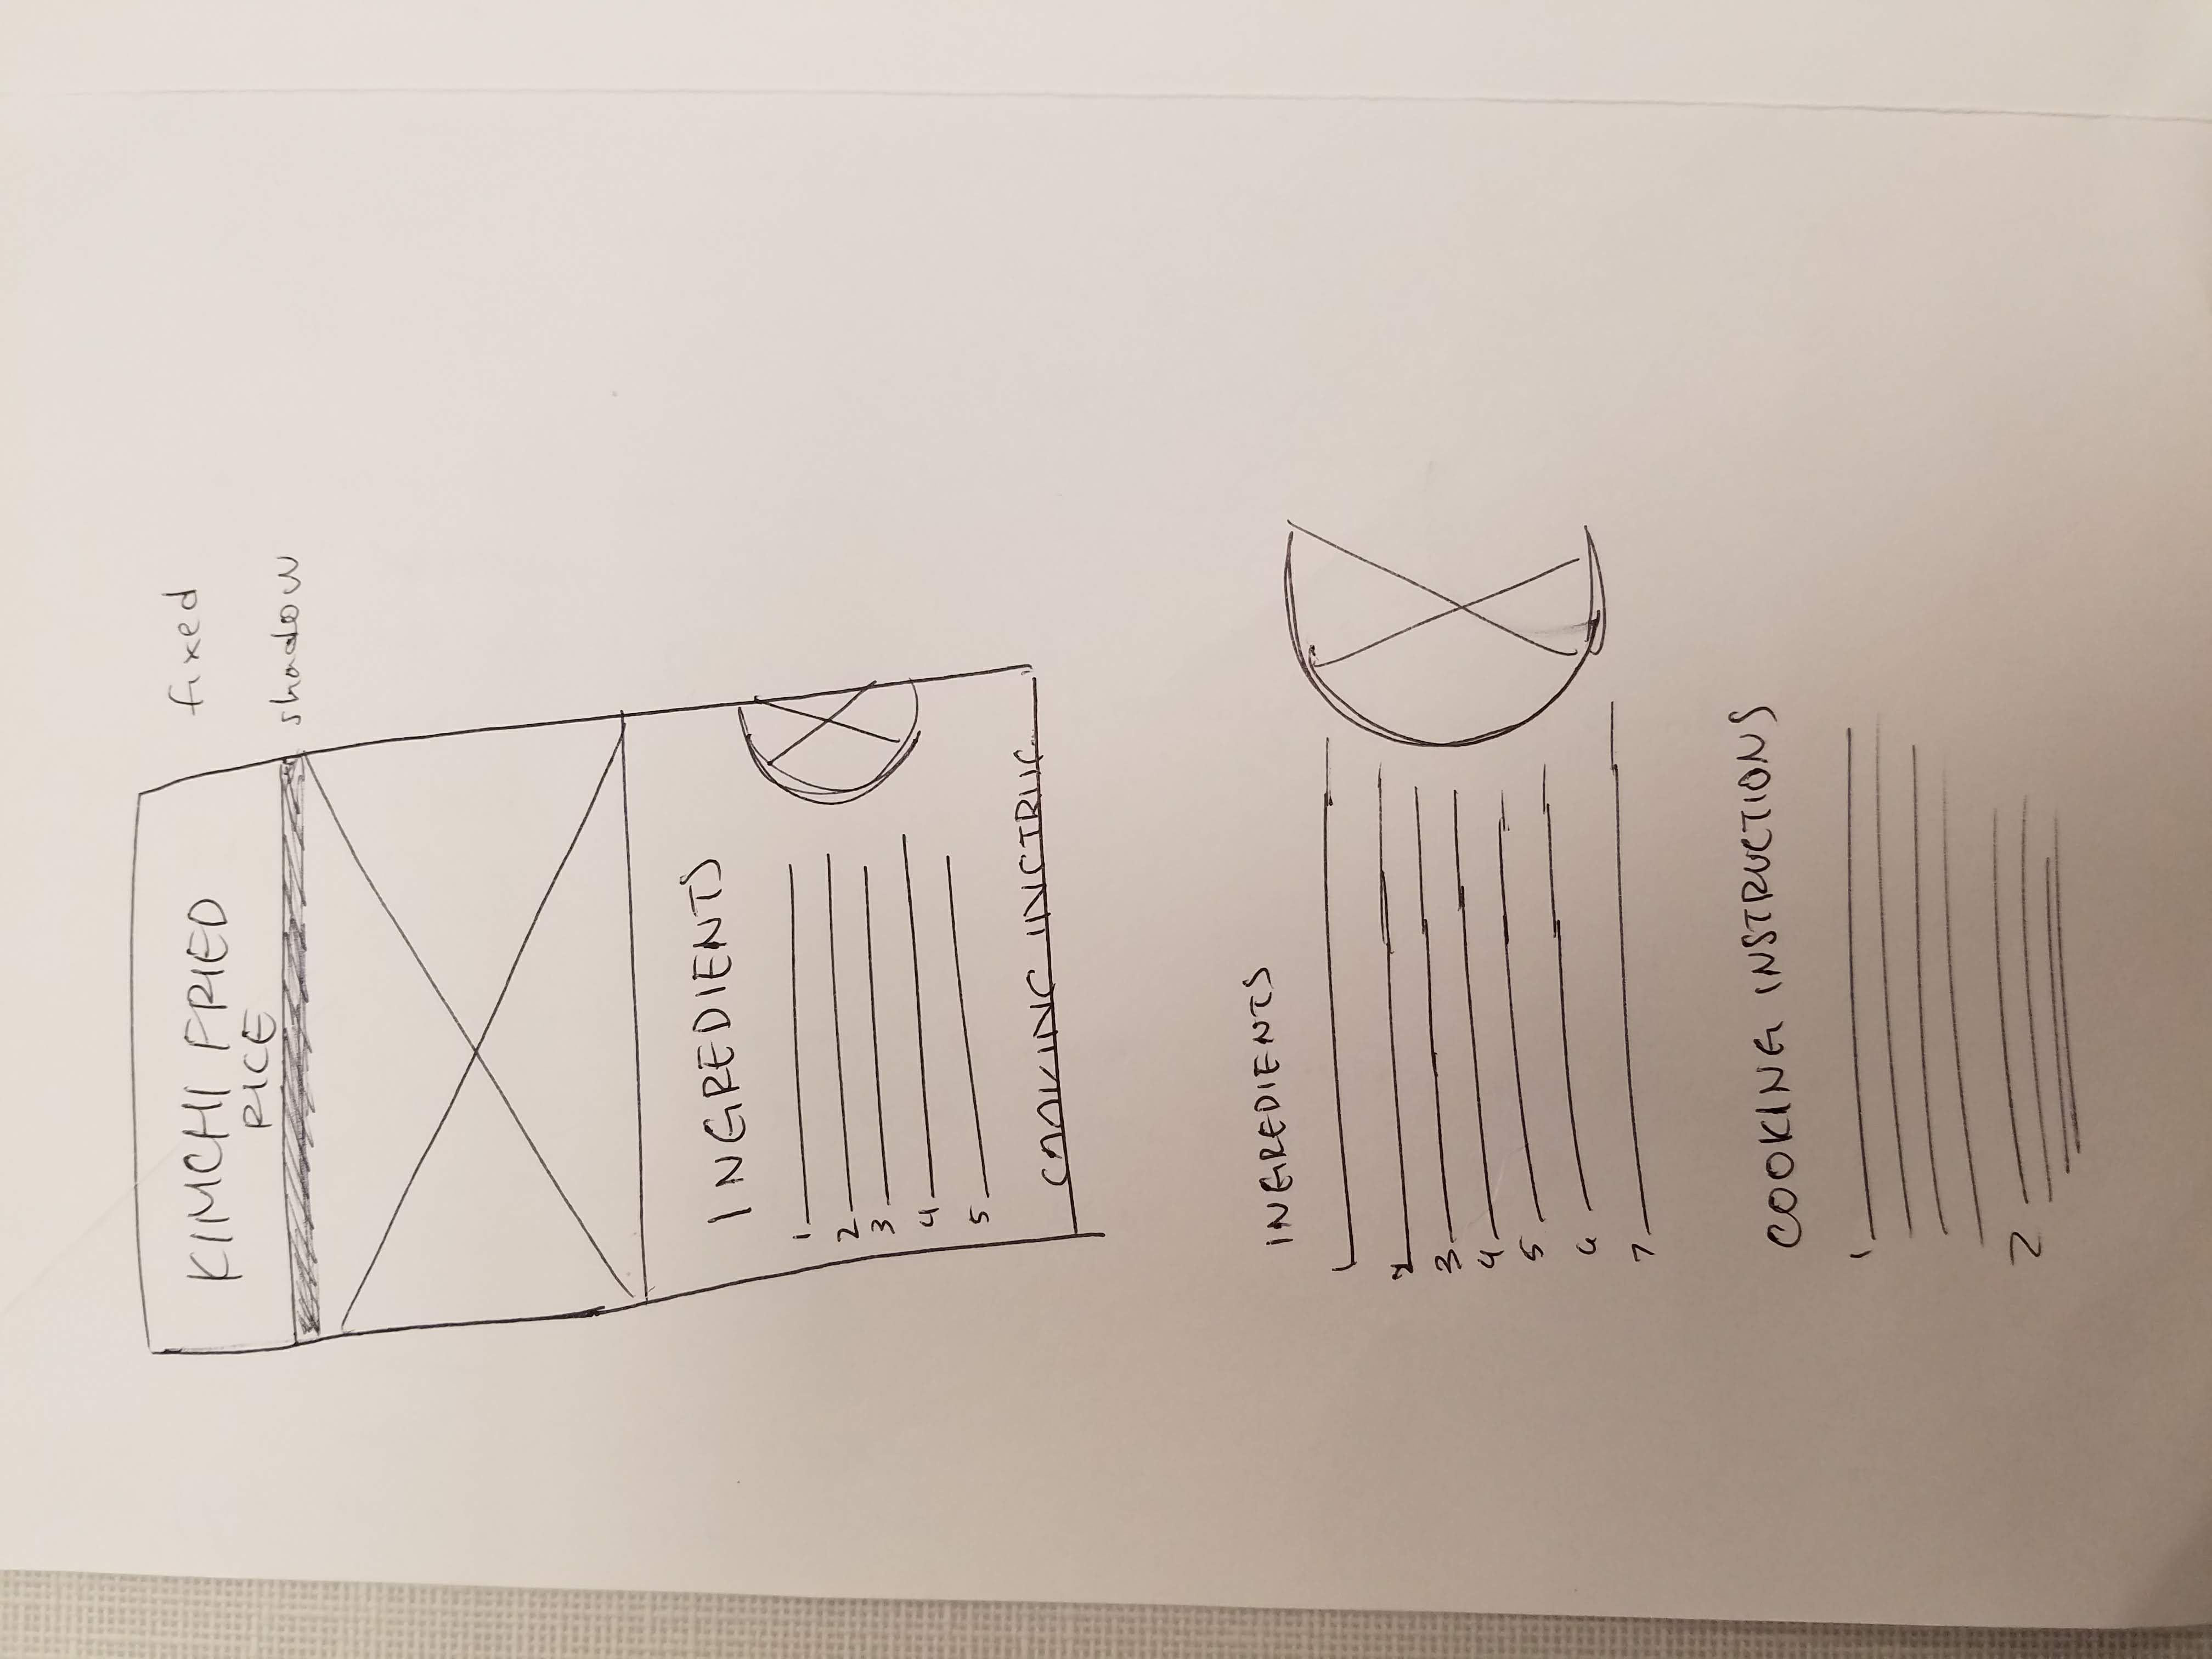 KIMCHI FRIED
RICE
fixed
shadow
INGREDIENTS
1
2
3
4
5
COOKING INSTRUC
INGREDIENTS
1
2
3
4
5
6
7
COOKING INSTRUCTIONS
1
2